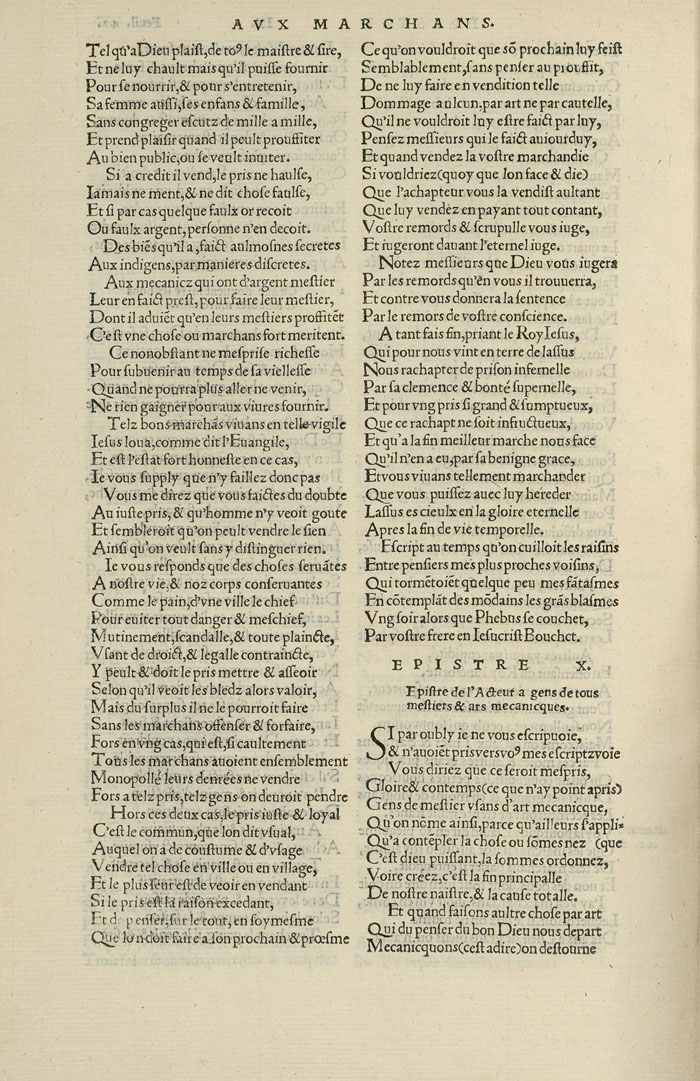 AVX MARCHANS.
Tel qu'a Dieu plaist, de to⁹ le maistre & sire,
Et ne luy chault mais qu'il puisse fournir
Pour se nourrir, & pour s'entretenir,
Sa femme aussi, ses enfans & famille,
Sans congreger escutz de mille a mille,
Et prend plaisir quand il peult prouffiter
Au bien public, ou se veult inuiter.
Si a credit il vend, le pris ne haulse,
Iamais ne ment, & ne dit chose faulse,
Et si par cas quelque faulx or recoit
Ou faulx argent, personne n'en decoit.
Des biēs qu'il a, faict aulmosnes secretes
Aux indigens, par manieres discretes.
Aux mecanicz qui ont d'argent mestier
Leur en faict prest, pour faire leur mestier,
Dont il aduiēt qu'en leurs mestiers proffitēt
C'est vne chose ou marchans fort meritent.
Ce nonobstant ne mesprise richesse
Pour subuenir au temps de sa viellesse
Quand ne pourra plus aller ne venir,
Ne rien gaigner pour aux viures fournir.
Telz bons marchās viuans en telle vigile
Iesus loua, comme dit l'Euangile,
Et est l'estat fort honneste en ce cas,
Ie vous supply que n'y faillez donc pas
Vous me direz que vous faictes du doubte
Au iuste pris, & qu'homme n'y veoit goute
Et sembleroit qu'on peult vendre le sien
Ainsi qu'on veult sans y distinguer rien.
Ie vous responds que des choses seruātes
A nostre vie, & noz corps conseruantes
Comme le pain, d'vne ville le chief
Pour euiter tout danger & meschief,
Mutinement, scandalle, & toute plaincte,
Vsant de droict, & legalle contraincte,
Y peult & doit le pris mettre & asseoir
Selon qu'il veoit les bledz alors valoir,
Mais du surplus il ne le pourroit faire
Sans les marchans offenser & forfaire,
Fors en vng cas, qui est, si caultement
Tous les marchans auoient ensemblement
Monopollé leurs denrées ne vendre
Fors a telz pris, telz gens on deuroit pendre
Hors ces deux cas, le pris iuste & loyal
C'est le commun, que lon dit vsual,
Auquel on a de coustume & d'vsage
Vendre tel chose en ville ou en village,
Et le plus seur est de veoir en vendant
Si le pris est la raison excedant,
Et d penser, sur le tout, en soymesme
Que lon doit faire a son prochain & prœsme
Ce qu'on vouldroit que sō prochain luy feist
Semblablement, sans penser au prouffit,
De ne luy faire en vendition telle
Dommage aulcun, par art ne par cautelle,
Qu'il ne vouldroit luy estre faict par luy,
Pensez messieurs qui le faict auiourduy,
Et quand vendez la vostre marchandie
Si vouldriez (quoy que lon face & die)
Que l'achapteur vous la vendist aultant
Que luy vendez en payant tout contant,
Vostre remords & scrupulle vous iuge,
Et iugeront dauant l'eternel iuge.
Notez messieurs que Dieu vous iugera
Par les remords qu'ēn vous il trouuerra,
Et contre vous donnera la sentence
Par le remors de vostre conscience.
A tant fais fin, priant le Roy Iesus,
Qui pour nous vint en terre de lassus
Nous rachapter de prison infernelle
Par sa clemence & bonté supernelle,
Et pour vng pris si grand & sumptueux,
Que ce rachapt ne soit infructueux,
Et qu'a la fin meilleur marche nous face
Qu'il n'en a eu, par sa benigne grace,
Et vous viuans tellement marchander
Que vous puissez auec luy hereder
Lassus es cieulx en la gloire eternelle
Apres la fin de vie temporelle.
Escript au temps qu'on cuilloit les raisins
Entre pensiers mes plus proches voisins,
Qui tormētoiēt quelque peu mes fātasmes
En cōtemplāt des mōdains les grās blasmes
Vng soir alors que Phebus se couchet,
Par vostre frere en Iesucrist Bouchet.
EPISTRE X.
Epistre de l'Acteur a gens de tous
mestiers & ars mecanicques.
SI par oubly ie ne vous escripuoie,
& n'auoiēt pris vers vo⁹ mes escriptz voie
Vous diriez que ce seroit mespris,
Gloire & contemps (ce que n'ay point apris)
Gens de mestier vsans d'art mecanicque,
Qu'on nōme ainsi, parce qu'ailleurs s'appli-
Qu'a contēpler la chose ou sōmes nez (que
C'est dieu puissant, la sommes ordonnez,
Voire créez, c'est la fin principalle
De nostre naistre, & la cause totalle.
Et quand faisons aultre chose par art
Qui du penser du bon Dieu nous depart
Mecanicquons (cest adire) on destourne